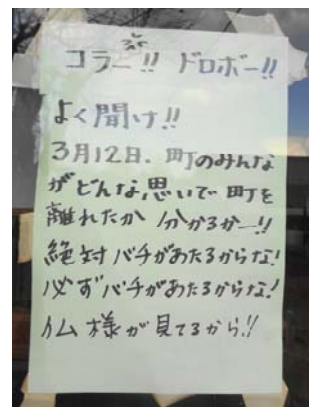 コラー!! ドロボー!!
よく聞け!!
3月12日.町のみんな
がどんな思いで町を
離れたか 分かるかー!!
絶対バチがあたるからな!
必ずバチがあたるからな!
仏様が見てるから!!